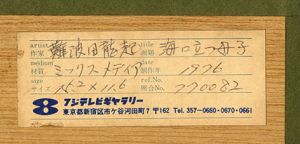 artist 作家 難波田龍起 title 画題 海に立つ母子
medium 材質 ミックスメディア date 制作年 1976
size サイズ 15.2×11.6 ref.No. 照合No. 770082
8 フジテレビギャラリー
東京都新宿区市ケ谷河田町7 〒162 Tel. 357-0660・0670・0661